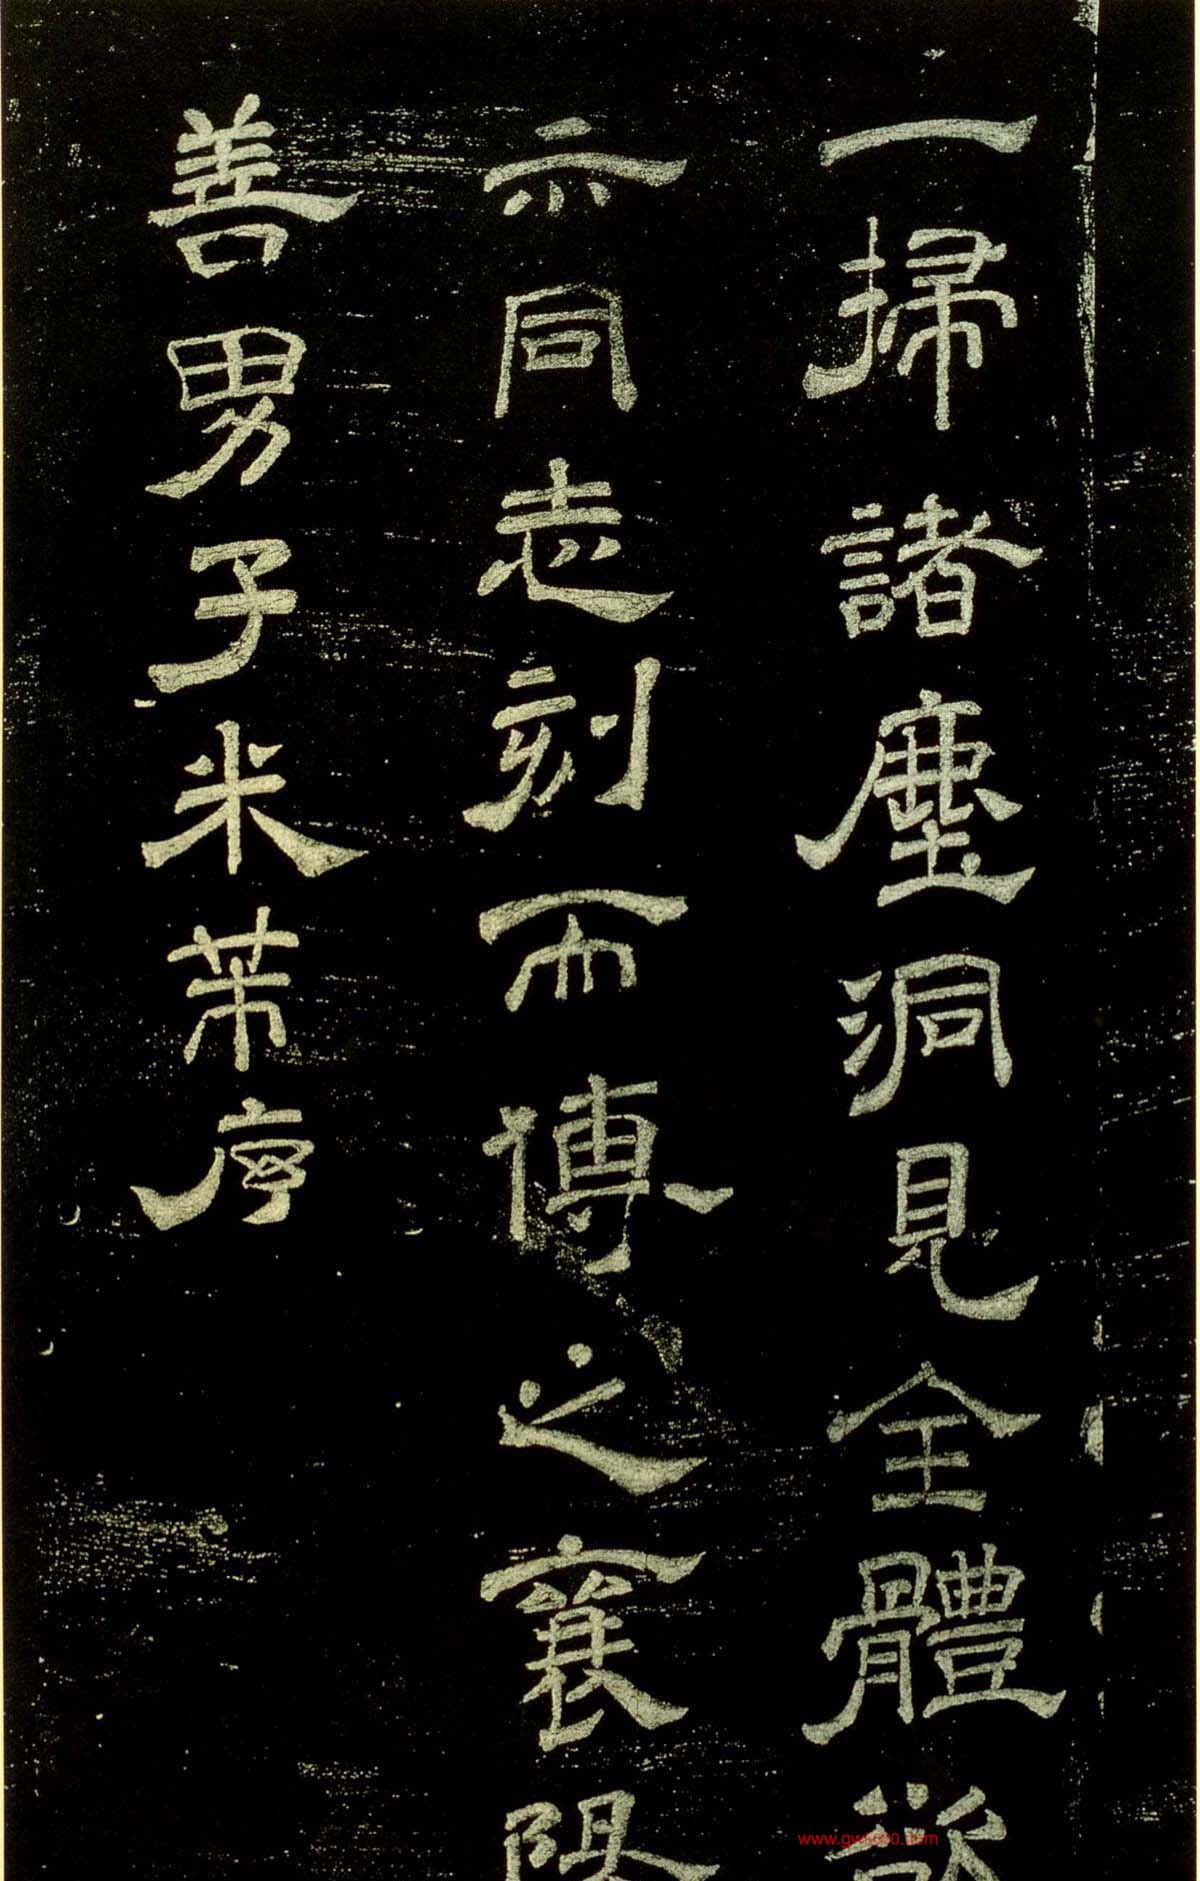 一掃諸塵洞見全體欲
示同志刻而傳之襄陽
善男子米芾序
www.gw1000.com